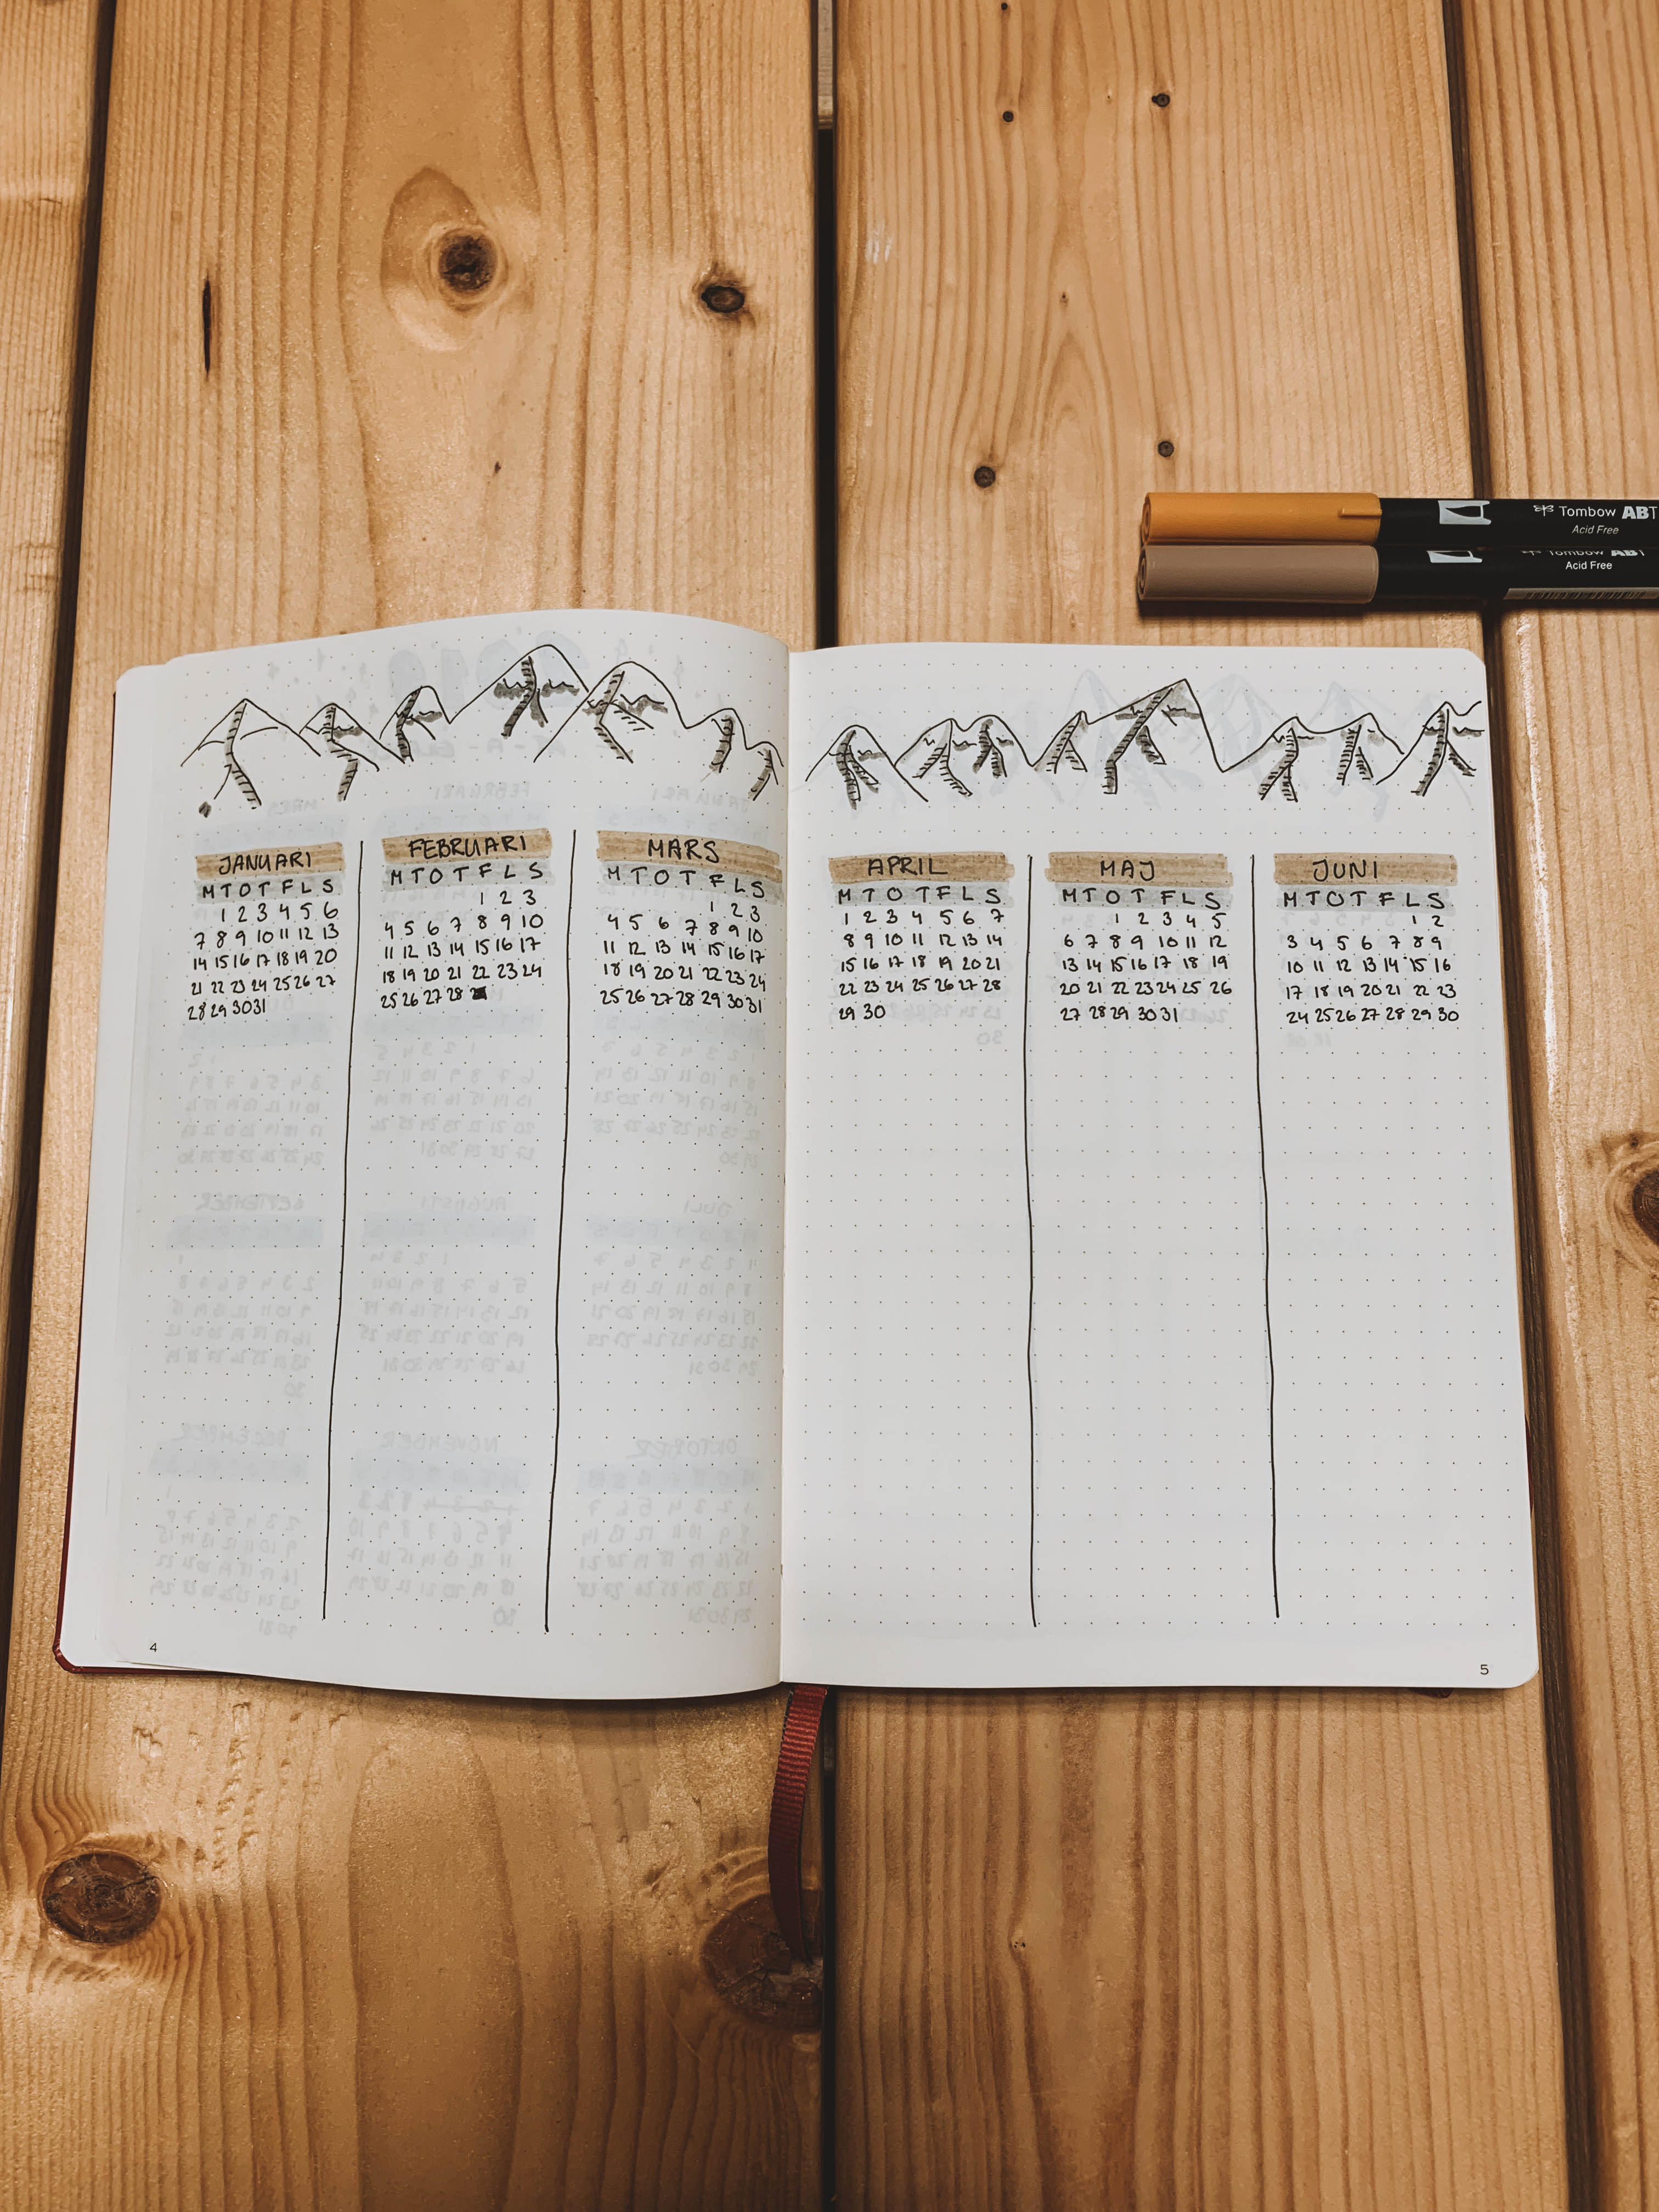 Tombow ABT
Acid Free
Tombow ABT
Acid Free
JANUARI
M T O T F L S
1 2 3 4 5 6
7 8 9 10 11 12 13
14 15 16 17 18 19 20
21 22 23 24 25 26 27
28 29 30 31
FEBRUARI
M T O T F L S
1 2 3
4 5 6 7 8 9 10
11 12 13 14 15 16 17
18 19 20 21 22 23 24
25 26 27 28
MARS
M T O T F L S
1 2 3
4 5 6 7 8 9 10
11 12 13 14 15 16 17
18 19 20 21 22 23 24
25 26 27 28 29 30 31
4
APRIL
M T O T F L S
1 2 3 4 5 6 7
8 9 10 11 12 13 14
15 16 17 18 19 20 21
22 23 24 25 26 27 28
29 30
MAJ
M T O T F L S
1 2 3 4 5
6 7 8 9 10 11 12
13 14 15 16 17 18 19
20 21 22 23 24 25 26
27 28 29 30 31
JUNI
M T O T F L S
1 2
3 4 5 6 7 8 9
10 11 12 13 14 15 16
17 18 19 20 21 22 23
24 25 26 27 28 29 30
5